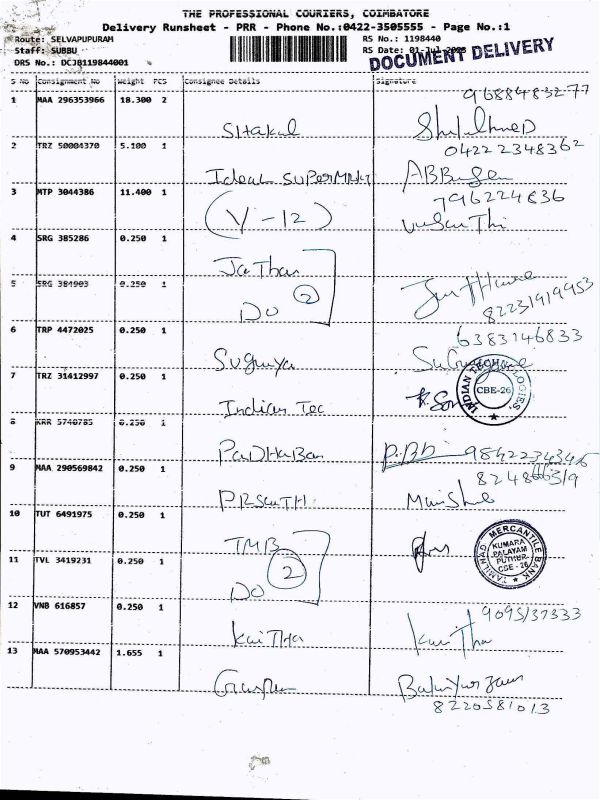 THE PROFESSIONAL COURIERS, COIMBATORE
Delivery Runsheet - PRR - Phone No.:0422-3505555 - Page No.:1
Route: SELVAPUPURAM
RS No.: 1198440
Staff: SUBBU
RS Date: 01-Jul-2023
DRS No.: DCJB119844001
DOCUMENT DELIVERY
S No Consignment No Weight PCS Consignee Details Signature
9688483277
1 MAA 296353966 18.300 2
Sitakul
04222348362
2 TRZ 50004370 5.100 1
Ideal SUPERMRKT
796224836
3 MTP 3044386 11.400 1
(V-12)
4 SRG 385286 0.250 1
Jathan
5 SRG 384903 0.250 1
DO 2
82231919953
6 TRP 4472025 0.250 1
6383146833
Sugunya
7 TRZ 31412997 0.250 1
INDIAN TECHNOLOGIES
CBE-26
Indian Tec
8 KRR 5740785 0.250 1
PaDHaBan
9842234346
9 MAA 290569842 0.250 1
PRSauTH
10 TUT 6491975 0.250 1
TMB
TAMILNAD MERCANTILE BANK
KUMARA
PALAYAM
PUTHUR
CBE - 26
11 TVL 3419231 0.250 1
DO 2
12 VNB 616857 0.250 1
9095137333
KaiTHa
13 MAA 570953442 1.655 1
8220581013